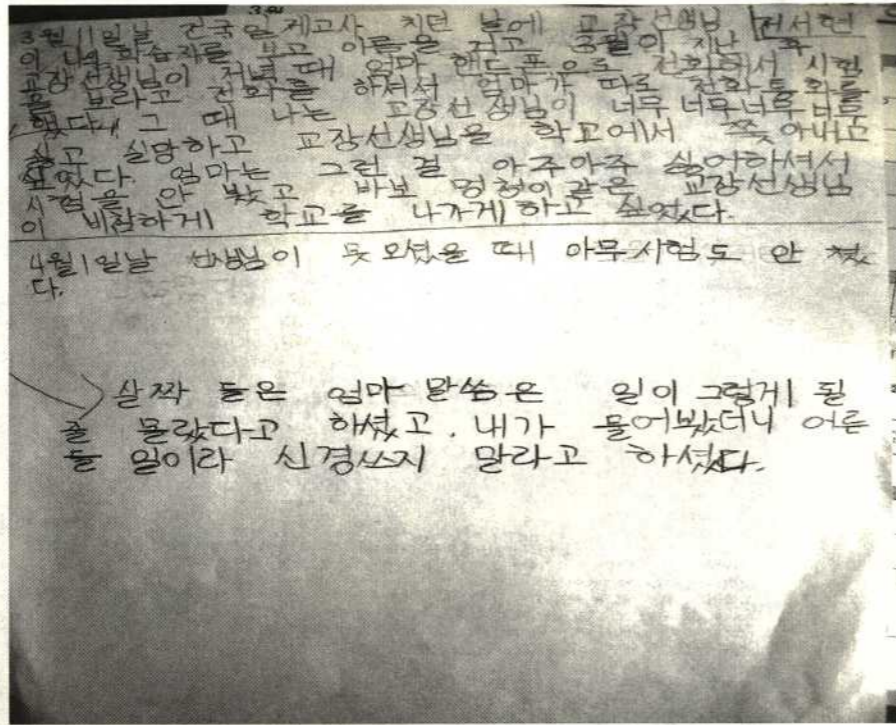 3월
3월 11일날 전국일제고사 치던 날에 교장선생님 전서현
이 나의 학습지를 보고 이름을 적고 3월이 지난 후
교장선생님이 저녁 때 엄마 핸드폰으로 전화해서 시험
을 보라고 전화를 하셔서 엄마가 따로 전화통화를
했다. 그 때 나는 교장선생님이 너무너무너무
싫고 실망하고 교장선생님을 학교에서 쫓아내고
싶었다. 엄마는 그런 걸 아주아주 싫어하셔서
시험을 안 봤고 바보 멍청이 같은 교장선생님
이 비참하게 학교를 나가게 하고 싶었다.
4월 1일날 선생님이 못 오셨을 때 아무 시험도 안 쳤
다.
살짝 들은 엄마 말씀은 일이 그렇게 될
줄 몰랐다고 하셨고, 내가 물어봤더니 어른
들 일이라 신경쓰지 말라고 하셨다.